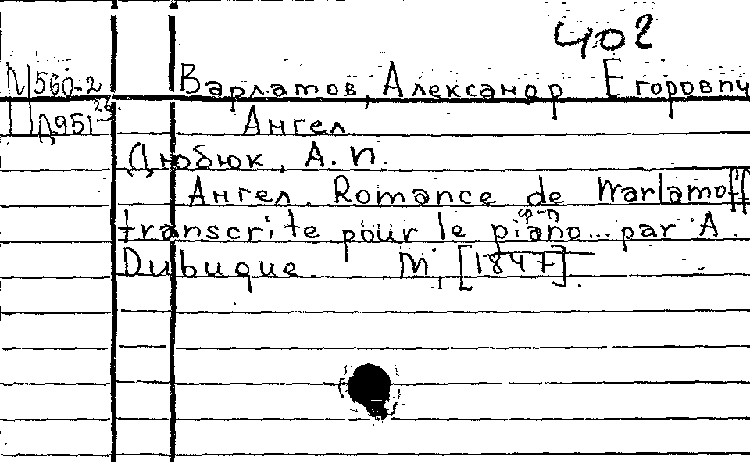 402
М 560-2 Варламов, Александр Егорович
Д951 Ангел
Дюбюк, А. И.
Ангел. Romance de Warlamoff
transcrite pour le piano... par A.
Dubuque. М., [1847].